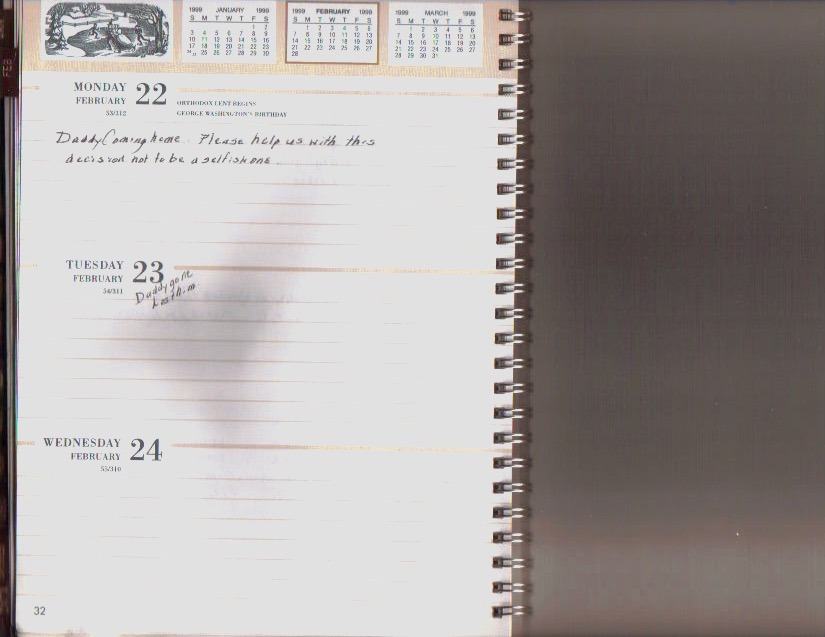 1999 JANUARY 1999
S M T W T F S
1 2
3 4 5 6 7 8 9
10 11 12 13 14 15 16
17 18 19 20 21 22 23
24 31 25 26 27 28 29 30
1999 FEBRUARY 1999
S M T W T F S
1 2 3 4 5 6
7 8 9 10 11 12 13
14 15 16 17 18 19 20
21 22 23 24 25 26 27
28
1999 MARCH 1999
S M T W T F S
1 2 3 4 5 6
7 8 9 10 11 12 13
14 15 16 17 18 19 20
21 22 23 24 25 26 27
28 29 30 31
FEB
MONDAY 22
FEBRUARY
53/312
ORTHODOX LENT BEGINS
GEORGE WASHINGTON'S BIRTHDAY
Daddy Coming home. Please help us with this
decision not to be a selfish one.
TUESDAY 23
FEBRUARY
54/311
Daddy gone
Lost him.
WEDNESDAY 24
FEBRUARY
55/310
32